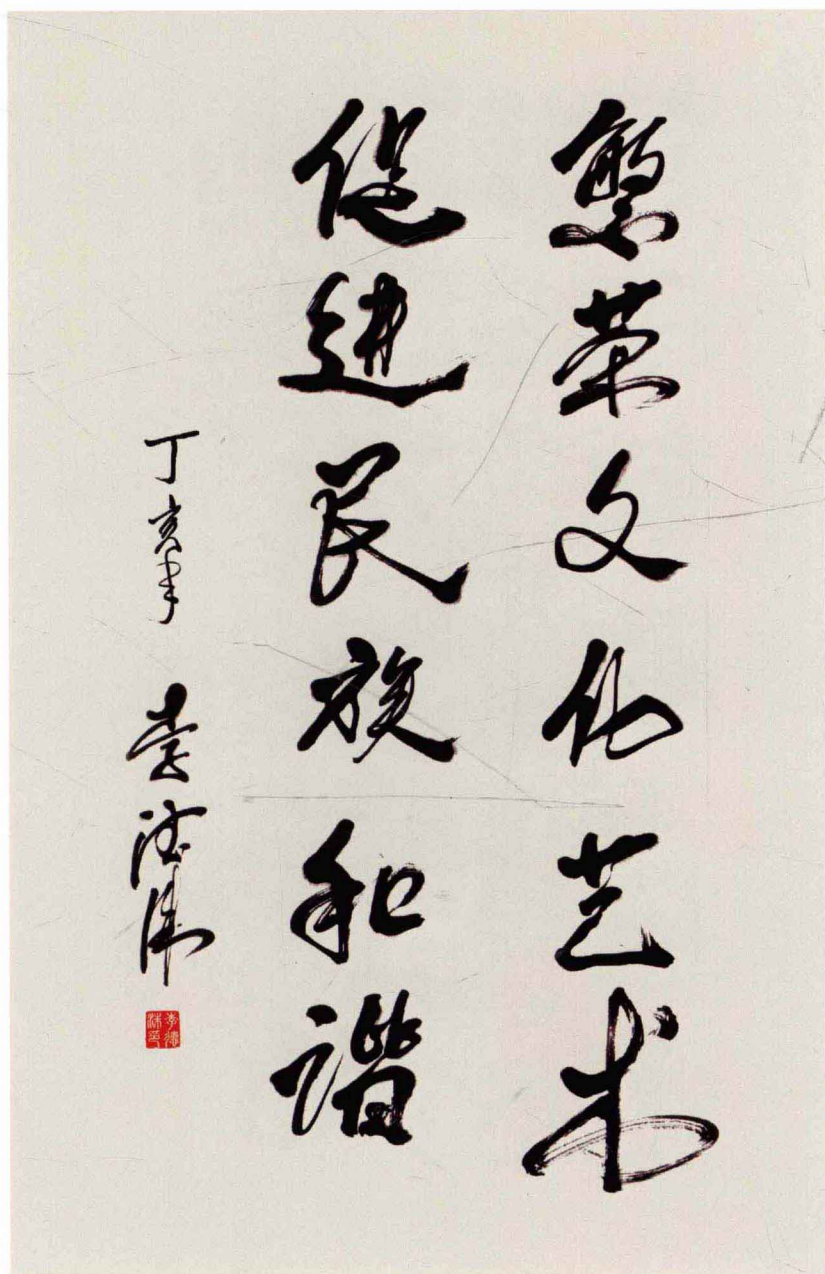 繁荣文化艺术
促进民族和谐
丁亥年 李德洙
李德洙印